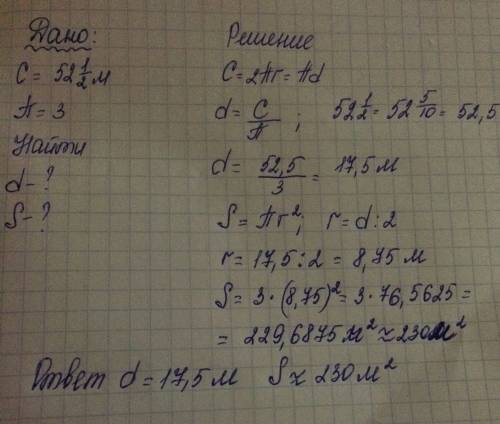 Дано:
C = 52 1/2 м
π = 3
Найти
d - ?
S - ?
Решение
C = 2πr = πd
d = C/π ; 52 1/2 = 52 5/10 = 52,5
d = 52,5/3 = 17,5 м
S = πr²; r = d : 2
r = 17,5 : 2 = 8,75 м
S = 3 · (8,75)² = 3 · 76,5625 =
= 229,6875 м² ≈ 230 м²
Ответ d = 17,5 м S ≈ 230 м²